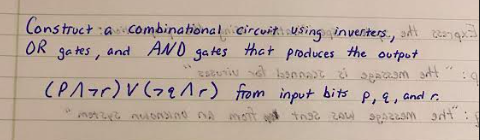 Construct a combinational circuit using inverters,
OR gates, and AND gates that produces the output
(P∧¬r)∨(¬q∧r) from input bits p, q, and r.